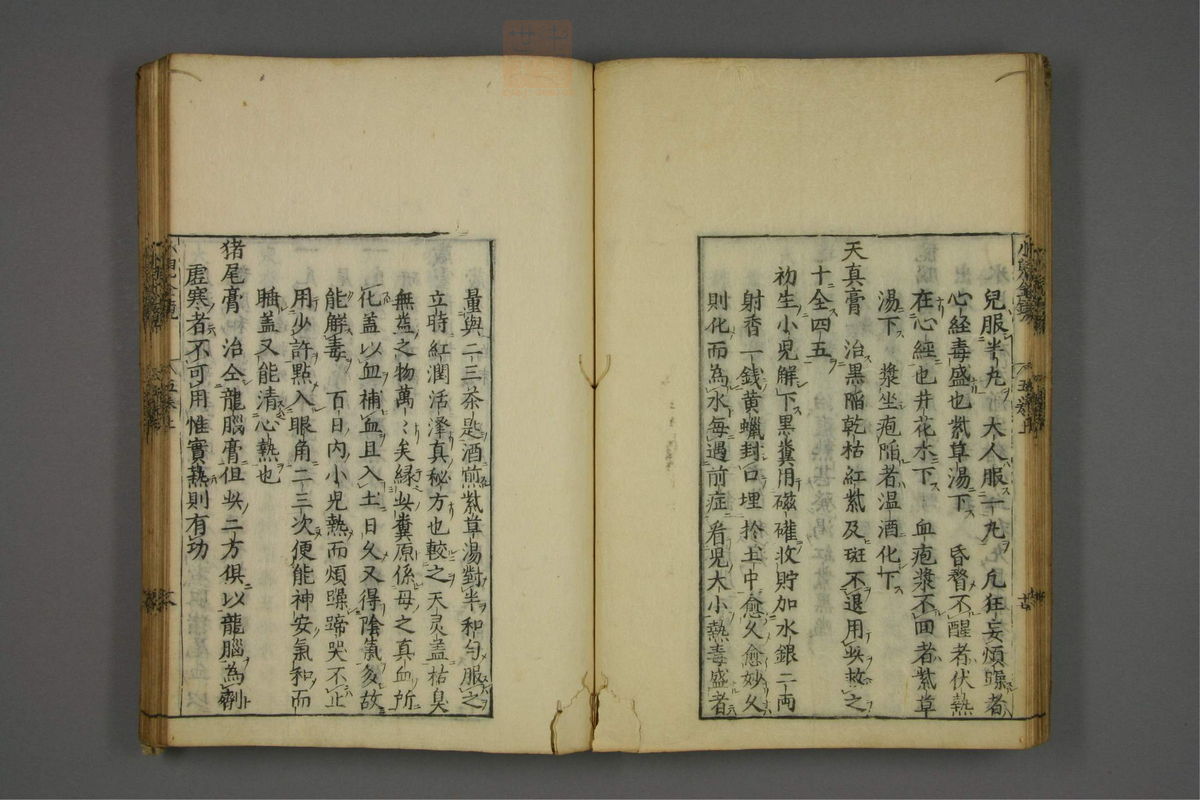 兒服半丸大人服一丸凡狂妄煩躁者
心経毒盛也紫草湯下 昏瞀不醒者伏熱
在心經也井花水下 血疱漿不囬者紫草
湯下 漿坐疱陥者温酒化下
天真膏 治黒陥乾枯紅紫及斑不退用此救之
十全四五
初生小児解下黒糞用磁礶收貯加水銀二両
射香一錢黄蠟封口埋於土中愈久愈妙久
則化而為水每過前症看児大小熱毒盛者
量與二三茶匙酒煎紫草湯對半和匀服之
立時紅潤活澤真秘方也較之天灵盖枯臭
無益之物萬〻矣縁此糞原係母之真血所
化盖以血補血且入土日久又得陰氣多故
能解毒 百日内小児熱而煩躁蹄哭不止
用少許點入眼角二三次便能神安氣和而
睡盖又能清心熱也
猪尾膏 治仝龍腦膏但此二方俱以龍腦為劑
虚寒者不可用惟實熱則有功